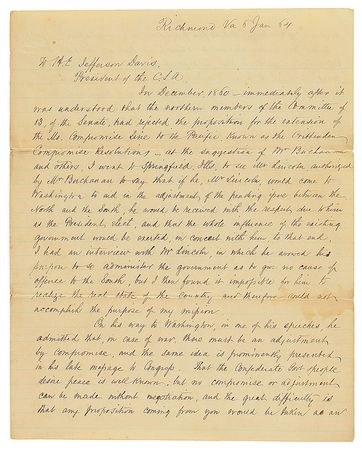 Richmond Va 6 Jan 64
To H. E. Jefferson Davis,
President of the C.S.A.
In December 1860 – immediately after it
was understood that the northern members of the Committee of
13 of the Senate, had rejected the proposition for the extension of
the Mo. Compromise line to the Pacific, known as the Crittenden
Compromise Resolutions – at the suggestion of Mr Buchanan
and others, I went to Springfield, Ills, to see Mr Lincoln authorized
by Mr Buchanan to say that if he, Mr Lincoln, would come to
Washington to aid in the adjustment of the pending issue between the
North and the South, he would be received with the respect due to him
as the President, elect, and that the whole influence of the existing
government would be exerted, in concert with him, to that end.
I had an interview with Mr Lincoln in which he avowed his
purpose to so administer the government as to give no cause of
offence to the South, but I then found it impossible for him to
realize the real state of the country, and therefore could not
accomplish the purpose of my mission.
On his way to Washington, in one of his speeches, he
admitted that in case of war, there must be an adjustment
by compromise, and the same idea is prominently presented
in his late message to Congress. That the Confederate Govt & people
desire peace is well known, but no compromise or adjustment
can be made without negotiation, and the great difficulty is
that any proposition coming from you would be taken as an